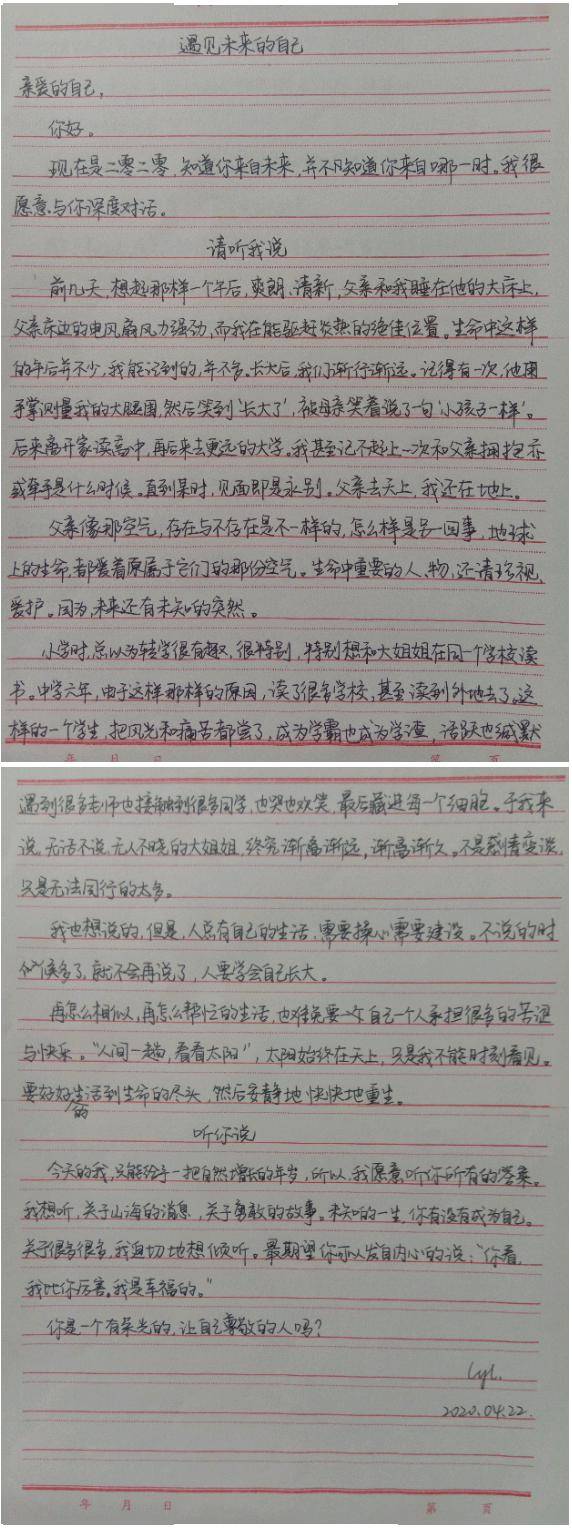 遇见未来的自己
亲爱的自己，
你好。
现在是二零二零，知道你来自未来，并不知道你来自哪一时。我很
愿意与你深度对话。
请听我说
前几天，想起那样一个午后，爽朗、清新，父亲和我睡在他的大床上，
父亲床边的电风扇风力强劲，而我在能驱赶炎热的绝佳位置。生命中这样
的午后并不少，我能记到的，并不多。长大后，我们渐行渐远。记得有一次，他用
手掌测量我的大腿围，然后笑到'长大了'，被母亲笑着说了一句'小孩子一样'。
后来离开家读高中，再后来去更远的大学。我甚至记不起上一次和父亲拥抱亦
或牵手是什么时候。直到某时，见面即是永别。父亲去天上，我还在地上。
父亲像那空气，存在与不存在是不一样的，怎么样是另一回事，地球
上的生命，都爱着原属于它们的那份空气。生命中重要的人、物，还请珍视，
爱护。因为，未来还有未知的突然。
小学时，总以为转学很有趣，很特别，特别想和大姐姐在同一个学校读
书。中学六年，由于这样那样的原因，读了很多学校，甚至读到外地去了。这
样的一个学生，把风光和痛苦都尝了，成为学霸也成为学渣，活跃也缄默
年 月 日 第 页
遇到很多老师也接触到很多同学，也哭也欢笑，最后藏进每一个细胞。于我来
说，无话不说，无人不晓的大姐姐，终究渐离渐远，渐离渐久。不是感情变淡，
只是无法同行的太多。
我也想说的，但是，人总有自己的生活，需要操心需要建设。不说的时
候多了，就不会再说了，人要学会自己长大。
再怎么相似，再怎么帮忙的生活，也难免要一次自己一个人承担很多的苦涩
与快乐。"人间一趟，看看太阳"，太阳始终在天上，只是我不能时刻看见。
要好好的生活到生命的尽头，然后安静地快快地重生。
听你说
今天的我，只能给予一把自然增长的年岁，所以，我愿意听你所有的答案。
我想听，关于山海的消息，关于勇敢的故事。未知的一生，你有没有成为自己。
关于很多很多，我迫切地想倾听。最期望你可以发自内心的说："你看，
我比你厉害。我是幸福的。"
你是一个有荣光的，让自己尊敬的人吗？
Lyl.
2020.04.22.
年 月 日 第 页